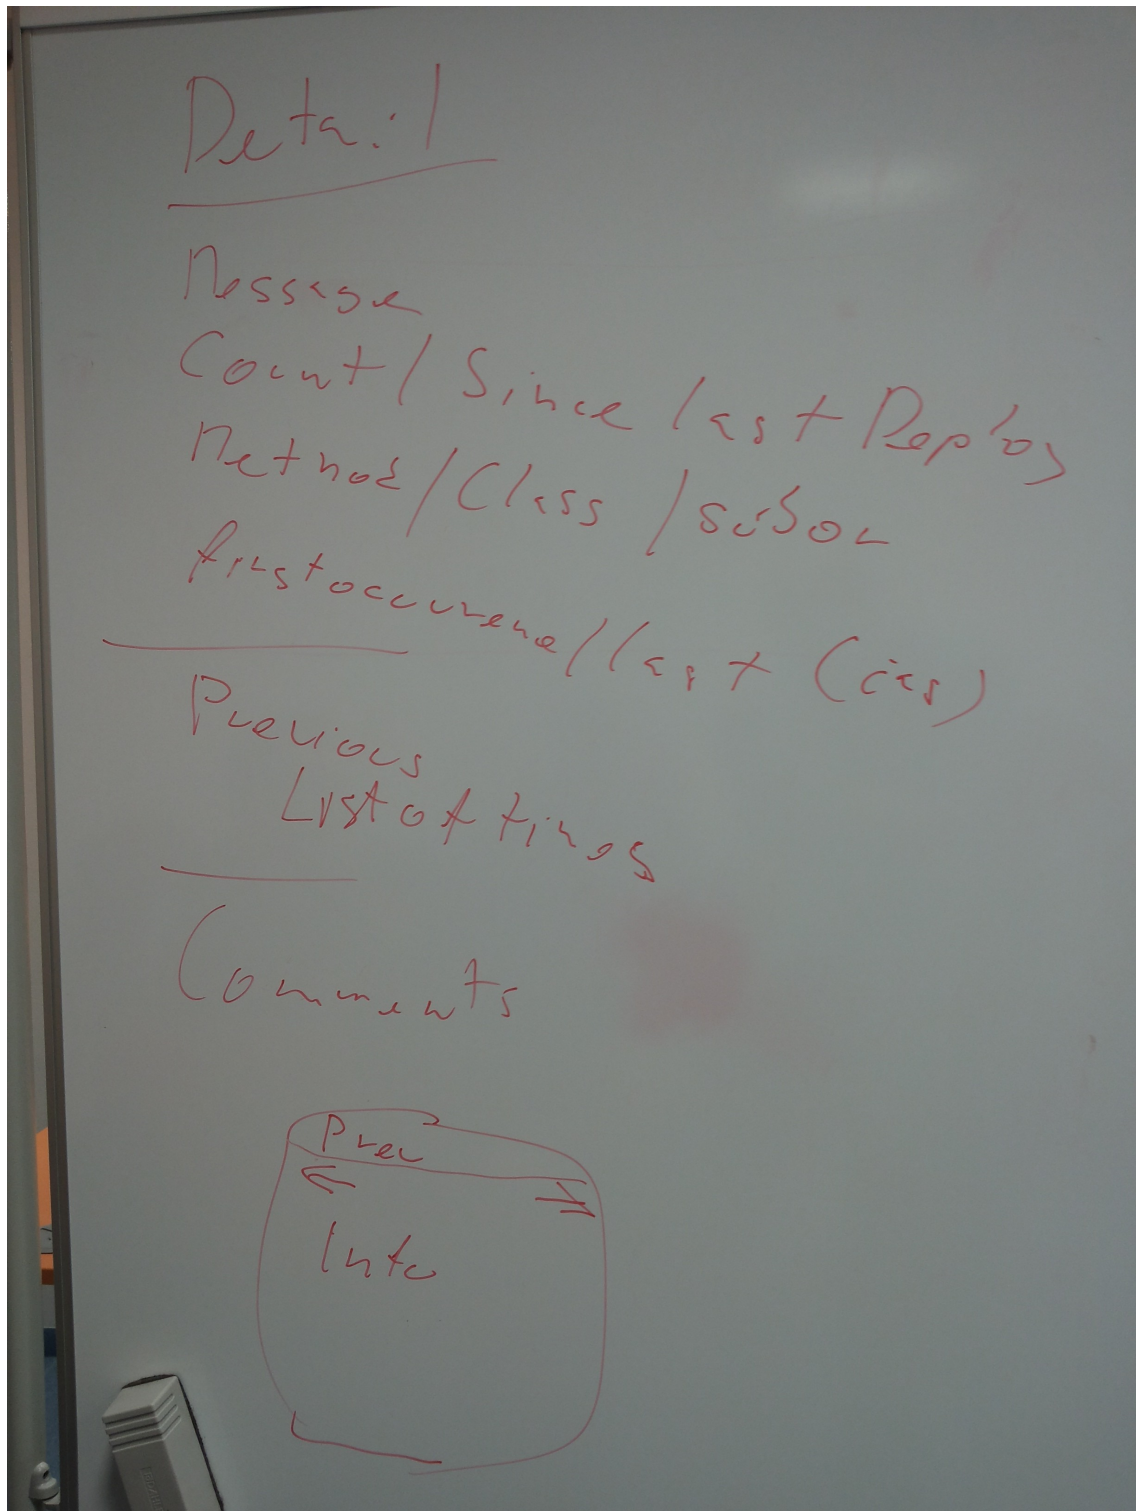 Detail
Message
Count / Since last Deploy
Method / Class /
first occurence / last
Previous
List of times
Comments
Prev
Info